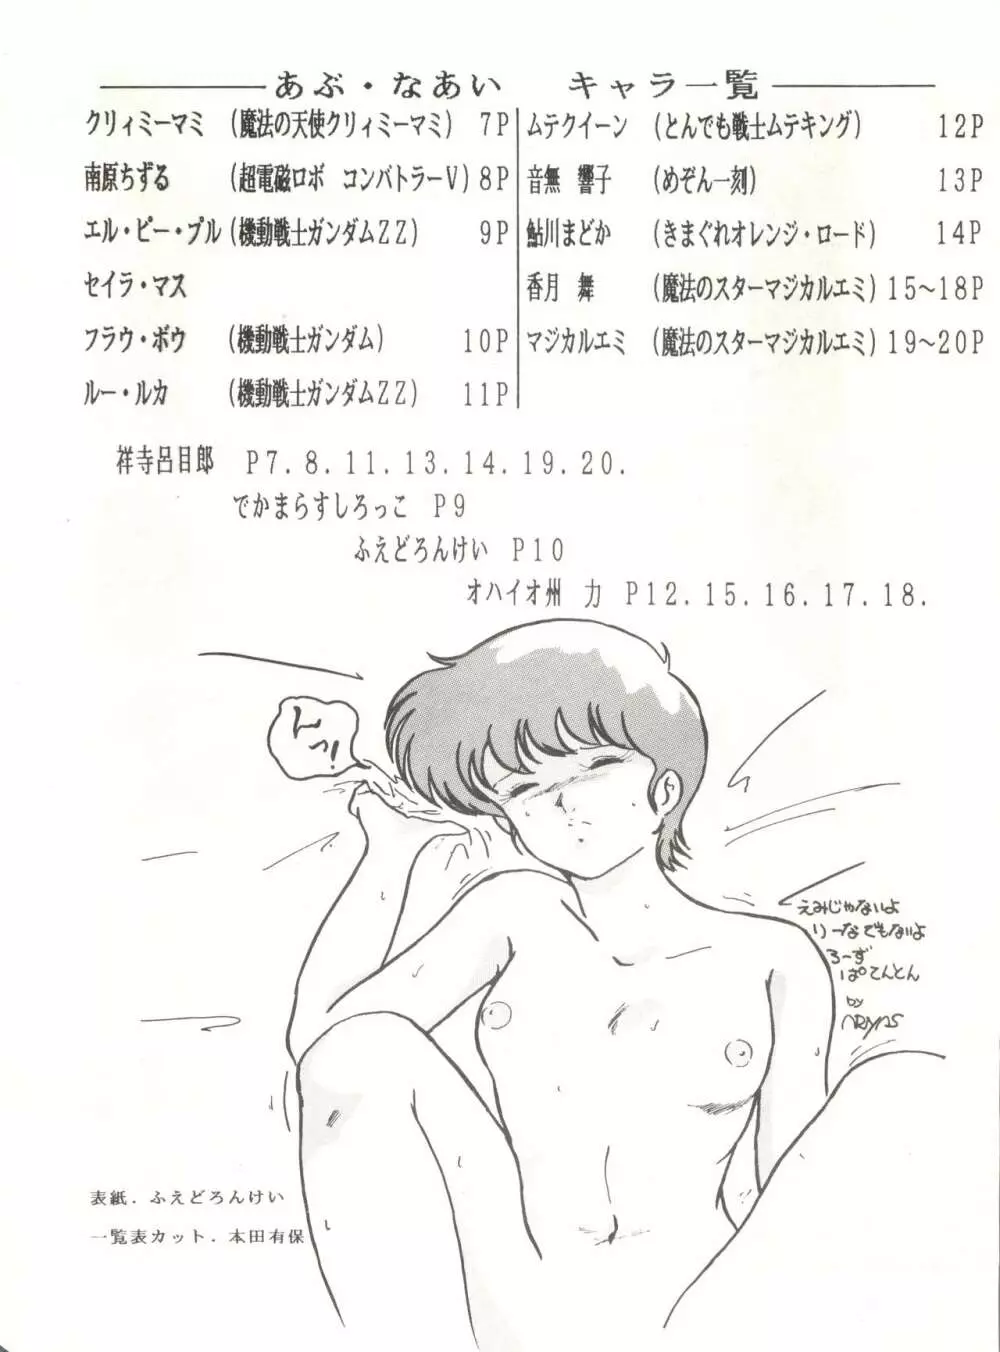 あぶ・なあい　キャラ一覧
クリィミーマミ (魔法の天使クリィミーマミ) 7P
南原ちずる (超電磁ロボ コンバトラーV) 8P
エル・ピー・プル (機動戦士ガンダムZZ) 9P
セイラ・マス
フラウ・ボウ (機動戦士ガンダム) 10P
ルー・ルカ (機動戦士ガンダムZZ) 11P
ムテクイーン (とんでも戦士ムテキング) 12P
音無 響子 (めぞん一刻) 13P
鮎川まどか (きまぐれオレンジ・ロード) 14P
香月 舞 (魔法のスターマジカルエミ) 15〜18P
マジカルエミ (魔法のスターマジカルエミ) 19〜20P
祥寺呂目郎 P7.8.11.13.14.19.20.
でかまらすしろっこ P9
ふえどろんけい P10
オハイオ州 力 P12.15.16.17.18.
んっ!
えみじゃないよ
りーなでもないよ
ろーず
ぱてんとん
by
表紙．ふえどろんけい
一覧表カット．本田有保